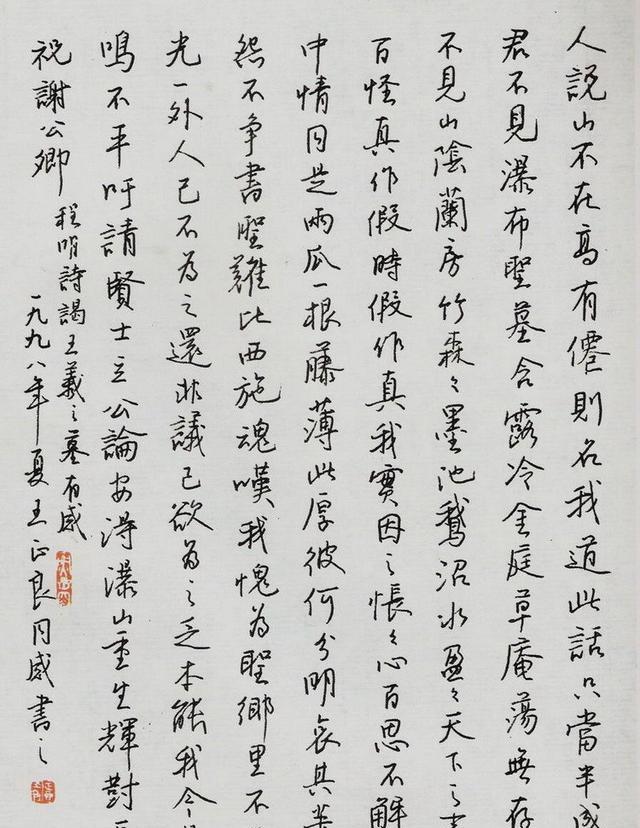 人說山不在高有僊則名我道此話只當半成
君不見瀑布聖墓含露冷金庭草庵蕩無存
不見山陰蘭房竹森々墨池鵝沼水盈々天下之
百怪真作假時假作真我實因之悵々心百思不解
中情同是兩瓜一根藤薄此厚彼何分明哀其
怨不爭書聖難比西施魂嘆我愧為聖鄉里不
光一外人已不為之還非議已欲為之乏本能我今
鳴不平吁請賢士立公論安得瀑山重生輝對
祝謝公卿
程明詩謁王羲之墓有感
一九九八年夏王正良同感書之